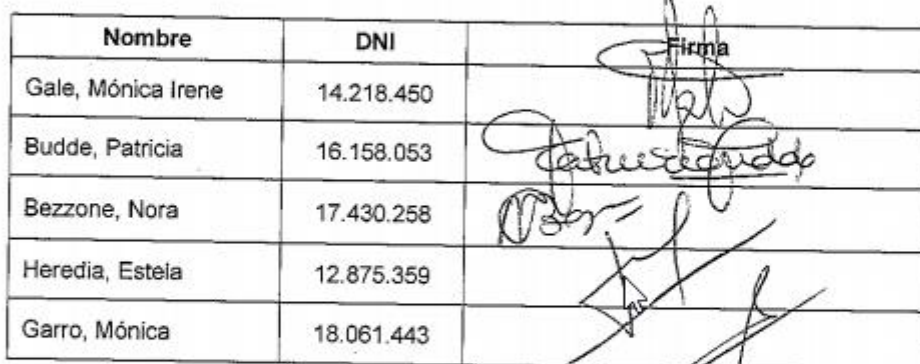 Nombre DNI Firma
Gale, Mónica Irene 14.218.450
Budde, Patricia 16.158.053
Bezzone, Nora 17.430.258
Heredia, Estela 12.875.359
Garro, Mónica 18.061.443